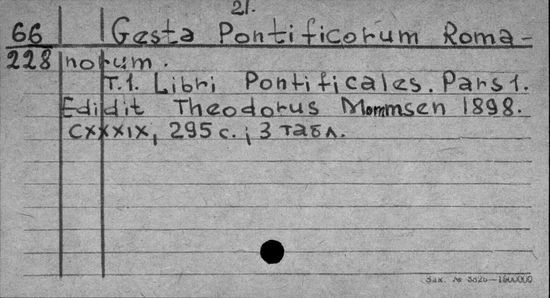 21.
66 Gesta Pontificorum Roma-
228 norum.
T.1. Libri Pontificales. Pars 1.
Edidit Theodorus Mommsen 1898.
CXXXIX, 295 с.; 3 табл.
Зак. № 3826—1500000